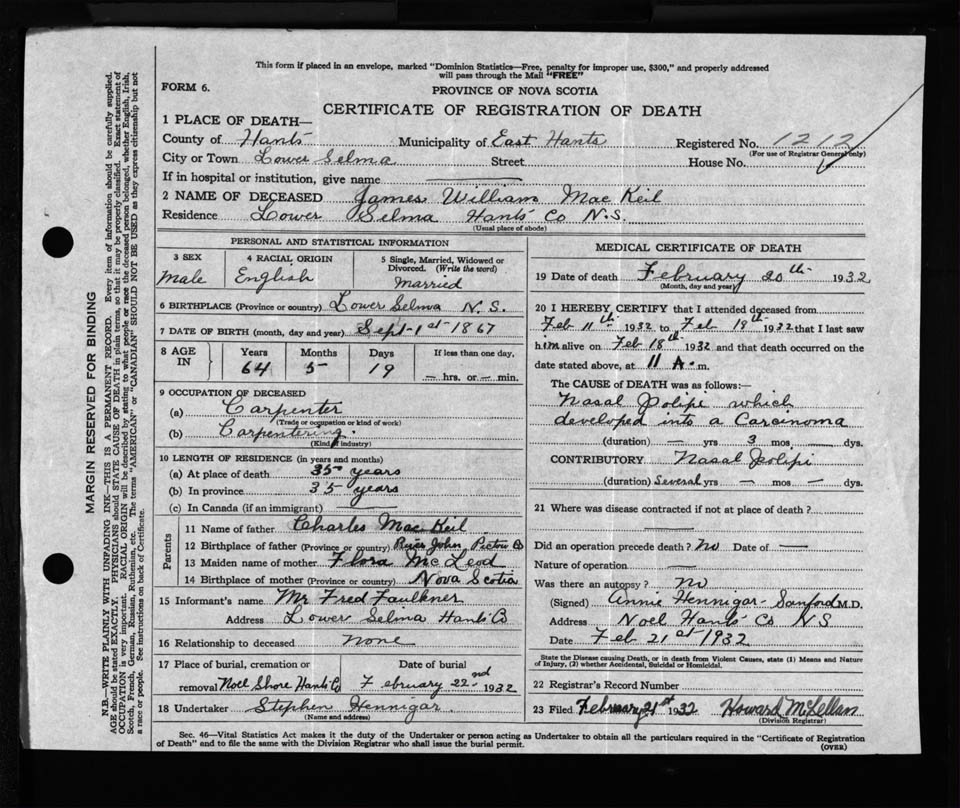 This form if placed in an envelope, marked "Dominion Statistics—Free, penalty for improper use, $300," and properly addressed
will pass through the Mail "FREE"
FORM 6.
PROVINCE OF NOVA SCOTIA
CERTIFICATE OF REGISTRATION OF DEATH
1 PLACE OF DEATH—
County of Hants Municipality of East Hants Registered No. 1212
(For use of Registrar General only)
City or Town Lower Selma Street House No.
If in hospital or institution, give name
2 NAME OF DECEASED James William Mac Keil
Residence Lower Selma Hants Co N.S.
(Usual place of abode)
PERSONAL AND STATISTICAL INFORMATION
3 SEX 4 RACIAL ORIGIN 5 Single, Married, Widowed or
Divorced. (Write the word)
Male English Married
6 BIRTHPLACE (Province or country) Lower Selma N.S.
7 DATE OF BIRTH (month, day and year) Sept-1st 1867
8 AGE IN Years Months Days If less than one day,
64 5 19 — hrs. or — min.
9 OCCUPATION OF DECEASED
(a) Carpenter
(Trade or occupation or kind of work)
(b) Carpentering.
(Kind of industry)
10 LENGTH OF RESIDENCE (in years and months)
(a) At place of death 35 years
(b) In province 35 years
(c) In Canada (if an immigrant)
Parents
11 Name of father Charles Mac Keil
12 Birthplace of father (Province or country) River John Pictou Co
13 Maiden name of mother Flora McLeod
14 Birthplace of mother (Province or country) Nova Scotia
15 Informant's name Mr Fred Faulkner
Address Lower Selma Hants Co
16 Relationship to deceased none
17 Place of burial, cremation or Date of burial
removal Noel Shore Hants Co February 22nd 1932
18 Undertaker Stephen Hennigar
(Name and address)
MEDICAL CERTIFICATE OF DEATH
19 Date of death February 20th 1932
(Month, day and year)
20 I HEREBY CERTIFY that I attended deceased from
Feb 11th 1932 to Feb 18th 1932 that I last saw
him alive on Feb 18th 1932 and that death occurred on the
date stated above, at 11 A. m.
The CAUSE OF DEATH was as follows:—
Nasal Polipi which
developed into a Carcinoma
(duration) — yrs 3 mos — dys.
CONTRIBUTORY Nasal Polipi
(duration) Several yrs — mos — dys.
21 Where was disease contracted if not at place of death?
Did an operation precede death? No Date of —
Nature of operation —
Was there an autopsy? No
(Signed) Annie Hennigar-Sanford M.D.
Address Noel Hants Co NS
Date Feb 21st 1932
State the Disease causing Death, or in death from Violent Causes, state (1) Means and Nature
of Injury, (2) whether Accidental, Suicidal or Homicidal.
22 Registrar's Record Number
23 Filed February 21st 1932 Howard McLellan
(Division Registrar)
Sec. 46—Vital Statistics Act makes it the duty of the Undertaker or person acting as Undertaker to obtain all the particulars required in the "Certificate of Registration
of Death" and to file the same with the Division Registrar who shall issue the burial permit.
(OVER)
MARGIN RESERVED FOR BINDING
N.B.—WRITE PLAINLY WITH UNFADING INK—THIS IS A PERMANENT RECORD. Every item of information should be carefully supplied.
AGE should be stated EXACTLY. PHYSICIANS should STATE CAUSE OF DEATH in plain terms, so that it may be properly classified. Exact statement of
OCCUPATION is very important. RACIAL ORIGIN will be described by stating to what people or race the deceased person belonged, whether English, Irish,
Scotch, French, German, Russian, Ruthenian, etc. The terms "AMERICAN" or "CANADIAN" SHOULD NOT BE USED as they express citizenship but not
a race or people. See instructions on back of Certificate.